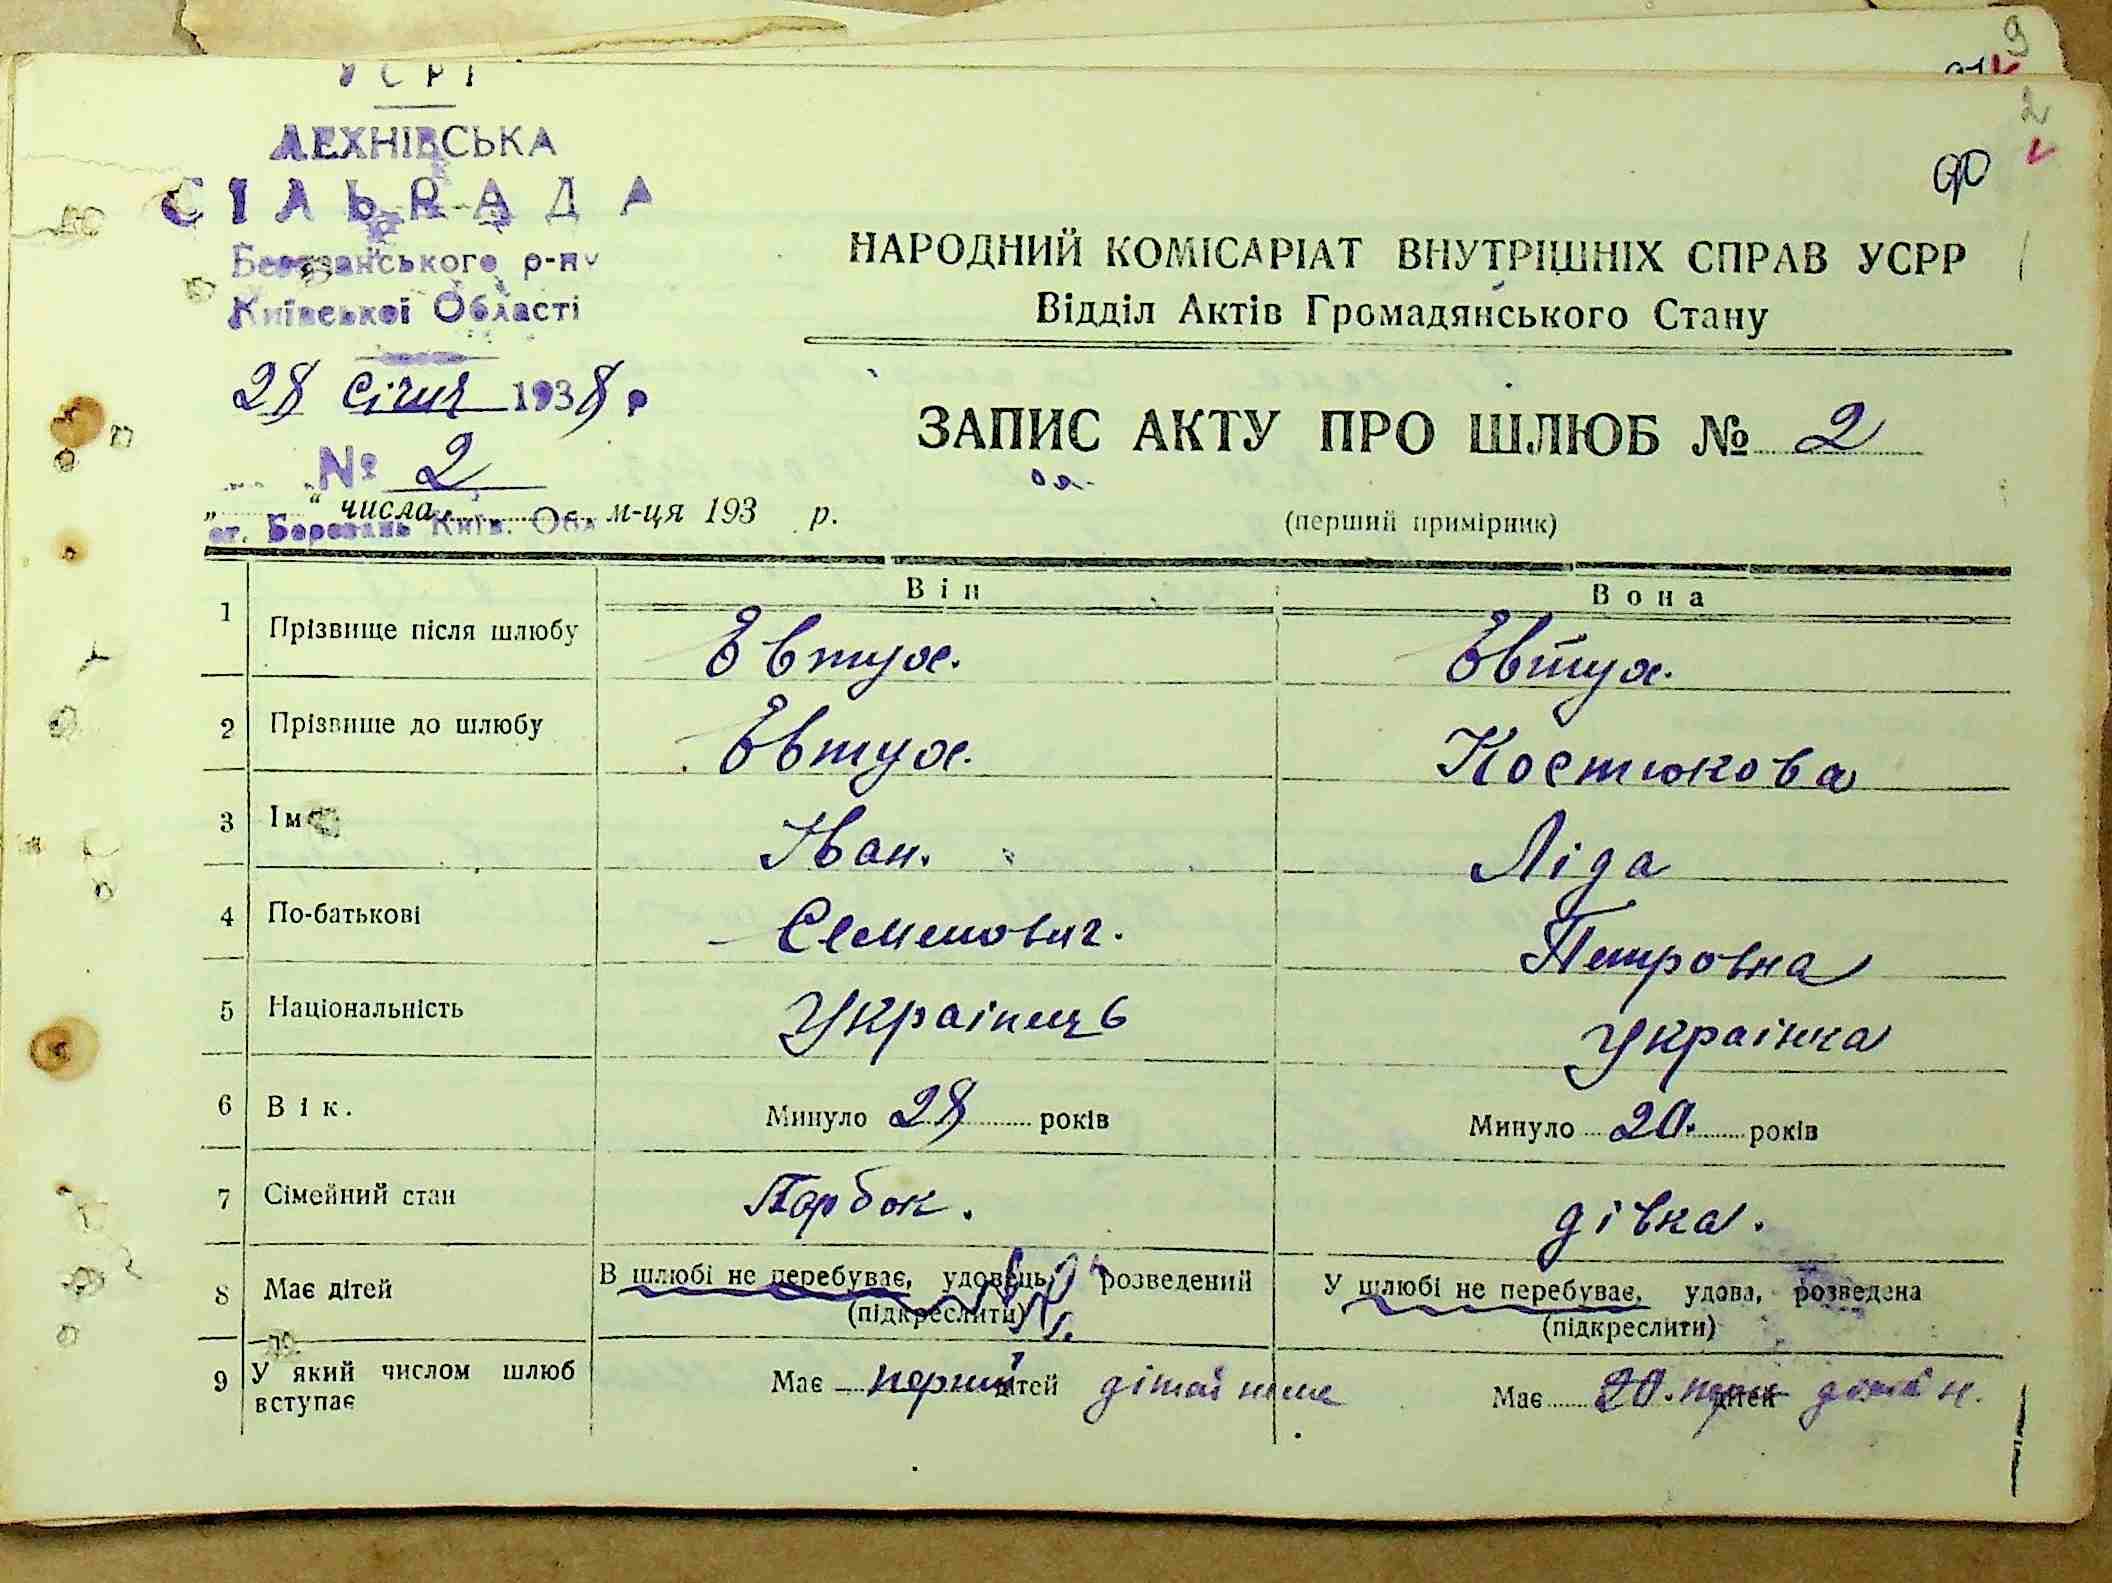 9
2
УСРР
ЛЕХНІВСЬКА
СІЛЬРАДА
Березанського р-ну
Київської Області
28 січня 1938 р
№ 2
ст. Березань Київ. Обл
„ “ числа м-ця 193 р.
НАРОДНИЙ КОМІСАРІАТ ВНУТРІШНІХ СПРАВ УСРР
Відділ Актів Громадянського Стану
ЗАПИС АКТУ ПРО ШЛЮБ № 2
(перший примірник)
Він Вона
1 Прізвище після шлюбу Евтух. Евтух.
2 Прізвище до шлюбу Евтух. Костюкова
3 Ім Іван. Ліда
4 По-батькові Семенович. Петровна
5 Національність Українець Українка
6 Вік. Минуло 28 років Минуло 20. років
7 Сімейний стан Парбок. дівка.
8 Має дітей В шлюбі не перебуває, удовець, розведений У шлюбі не перебуває, удова, розведена
(підкреслити) (підкреслити)
9 У який числом шлюб вступає Має перший дітей дітей нема Має 20. перш дітей дітей н.